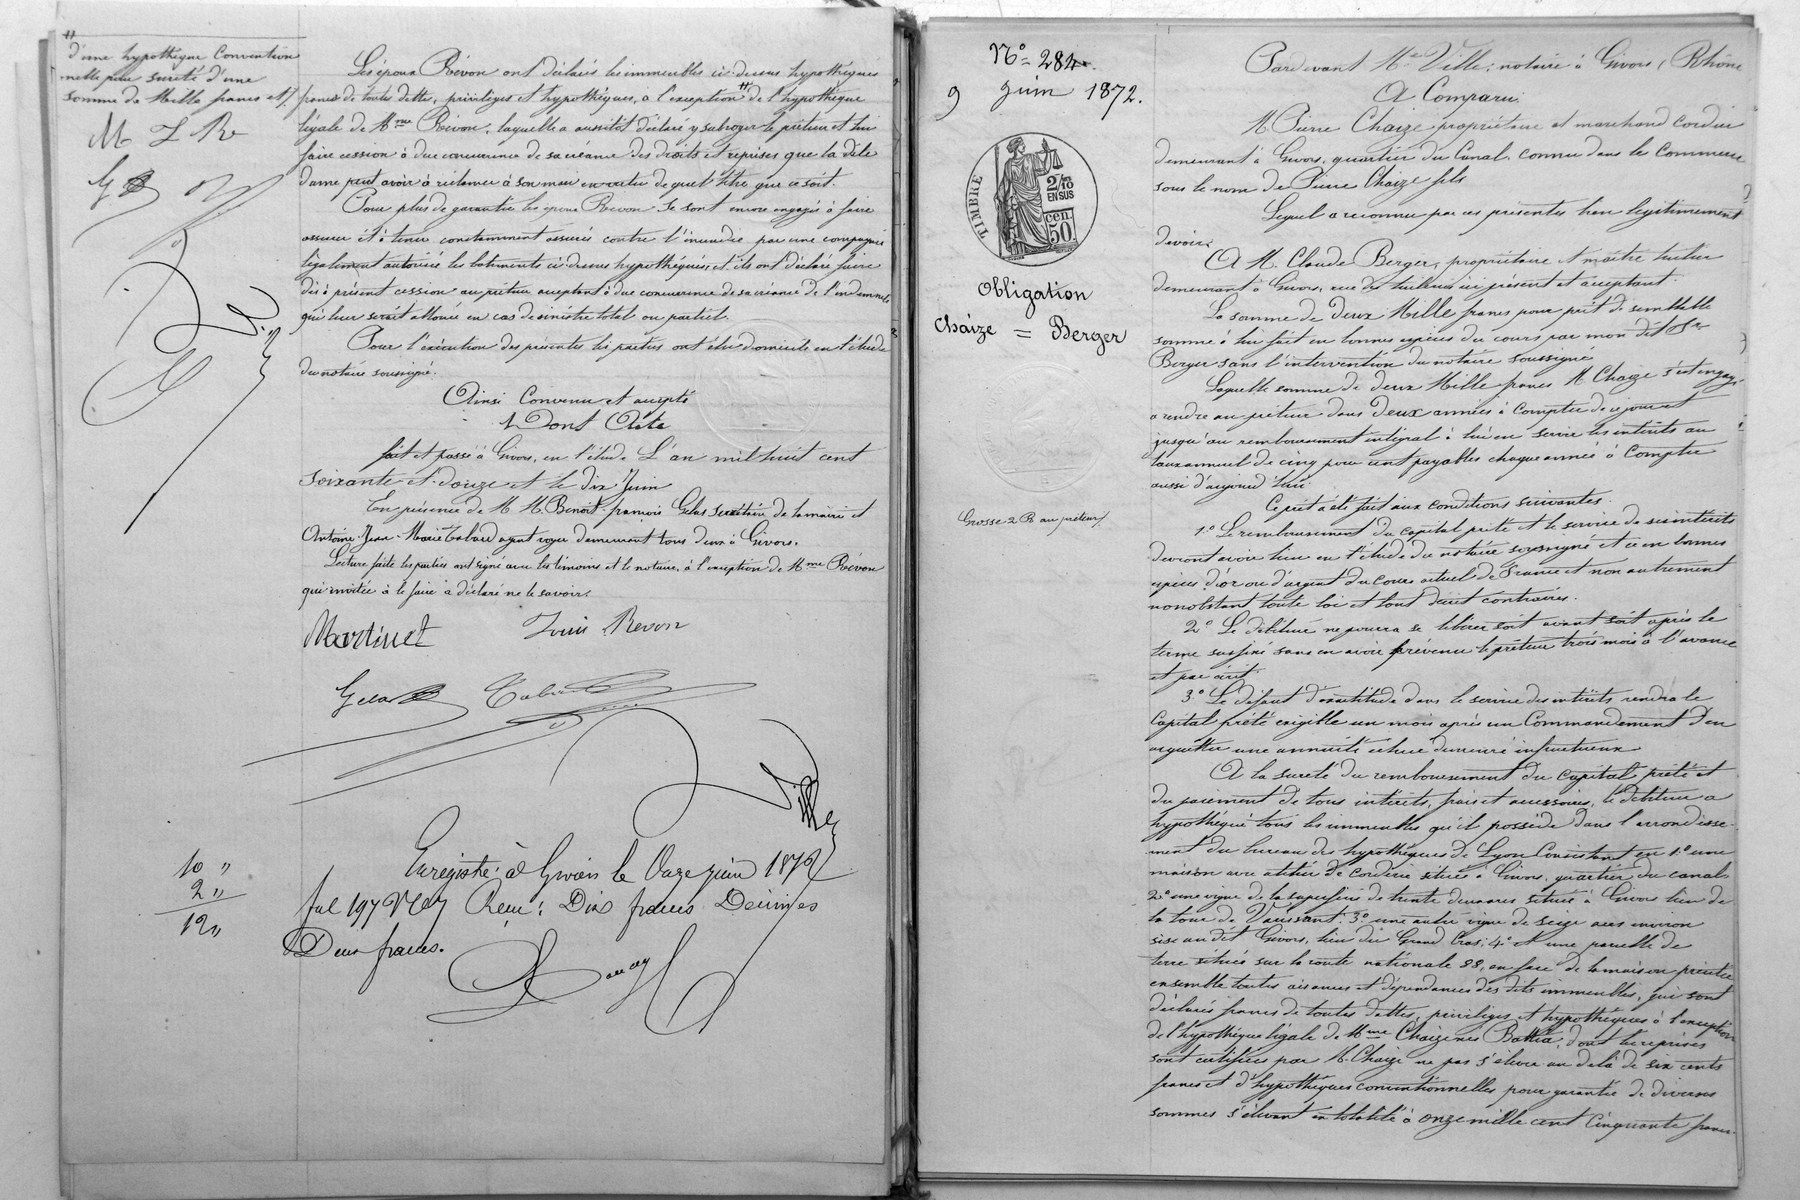 d'une hypothèque Convention
nelle pour sureté d'une
somme de Mille francs et/.
M L Re
G
Les époux Révon ont déclaré les immeubles ci-dessus hypothéqués
francs de toutes dettes, privilèges et hypothèques, à l'exception de l'hypothèque
légale de Mme Révon, laquelle a aussitôt déclaré y subroger le prêteur et lui
faire cession à due concurrence de sa créance des droits et reprises que la dite
dame peut avoir à réclamer à son mari en vertu de quel titre que ce soit.
Pour plus de garantie les époux Révon se sont encore engagés à faire
assurer et à tenir constamment assurés contre l'incendie par une compagnie
légalement autorisée les bâtiments ci-dessus hypothéqués, et ils ont déclaré faire
dès à présent cession au prêteur acceptant à due concurrence de sa créance de l'indemnité
qui leur serait allouée en cas de sinistre total ou partiel.
Pour l'exécution des présentes les parties ont élu domicile en l'étude
du notaire soussigné.
Ainsi Convenu et accepté
Dont Acte
fait et passé à Givors, en l'étude L'an mil huit cent
soixante et douze et le dix Juin
En présence de M. M. Benoit françois Gelas secrétaire de la mairie et
Antoine Jean-Marie Tabard agent voyer demeurant tous deux à Givors.
Lecture faite les parties ont signé avec les témoins et le notaire, à l'exception de Mme Révon
qui invitée à le faire a déclaré ne le savoir.
Martinet Louis Revon
Gelas Tabard
Ville
Enregistré à Givors le Onze juin 1872
fol 197 Reçu: Dix francs Décimes
Deux francs.
10 "
2 "
12 "
No 284.
9 Juin 1872.
TIMBRE
2/10
EN SUS
50 cen.
Obligation
Chaize = Berger
Grosse 2 R. au prêteur/.
Pardevant Me Ville, notaire à Givors, Rhône
A Comparu
M. Pierre Chaize propriétaire et marchand cordier
demeurant à Givors, quartier du Canal, connu dans le Commerce
sous le nom de Pierre Chaize fils
Lequel a reconnu par ces présentes bien légitimement
devoir.
A M. Claude Berger, propriétaire et maître tuilier
demeurant à Givors, rue des tuileries ici présent et acceptant.
La somme de deux Mille francs pour prêt de semblable
somme à lui fait en bonnes espèces du cours par mon dit Sr
Berger sans l'intervention du notaire soussigné
Laquelle somme de deux Mille francs M. Chaize s'est engagé
à rendre au prêteur dans deux années à Compter de ce jour et
jusqu'au remboursement intégral à lui en servir les intérêts au
taux annuel de cinq pour cent payables chaque année à Compter
aussi d'aujourd'hui.
Ce prêt a été fait aux conditions suivantes.
1o Le remboursement du capital prêté et le service de ses intérêts
devront avoir lieu en l'étude du notaire soussigné et ce en bonnes
espèces d'or ou d'argent du Cours actuel de France et non autrement
nonobstant toute loi et tout décret contraires.
2o Le débiteur ne pourra se libérer soit avant soit après le
terme sus fixé sans en avoir prévenu le prêteur trois mois à l'avance
et par écrit.
3o Le défaut d'exactitude dans le service des intérêts rendra le
Capital prêté exigible un mois après un Commandement d'en
acquitter une annuité échue demeuré infructueux
A la sureté du remboursement du Capital prêté et
du paiement de tous intérêts, frais et accessoires, le débiteur a
hypothéqué tous les immeubles qu'il possède dans l'arrondisse-
ment du bureau des hypothèques de Lyon Consistant en 1o une
maison avec atelier de corderie située à Givors, quartier du canal
2o une vigne de la superficie de trente deux ares située à Givors lieu de
la tour de Varissant. 3o une autre vigne de seize ares environ
sise au dit Givors, lieu du Grand Cras; 4o et une parcelle de
terre située sur la route nationale 88, en face de la maison précitée
ensemble toutes aisances et dépendances des dits immeubles, qui sont
déclarés francs de toutes dettes, privilèges et hypothèques à l'exception
de l'hypothèque légale de Mme Chaize née Battia, dont les reprises
sont certifiées par M. Chaize ne pas s'élever au delà de six cents
francs et d'hypothèques conventionnelles pour garantie de diverses
sommes s'élevant en totalité à onze mille cent Cinquante francs